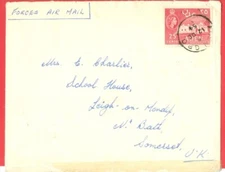 FORCES AIR MAIL
Mrs E. Charlies,
School House,
Leigh-on-Mendip,
Nr. Bath,
Somerset,
U.K.
35